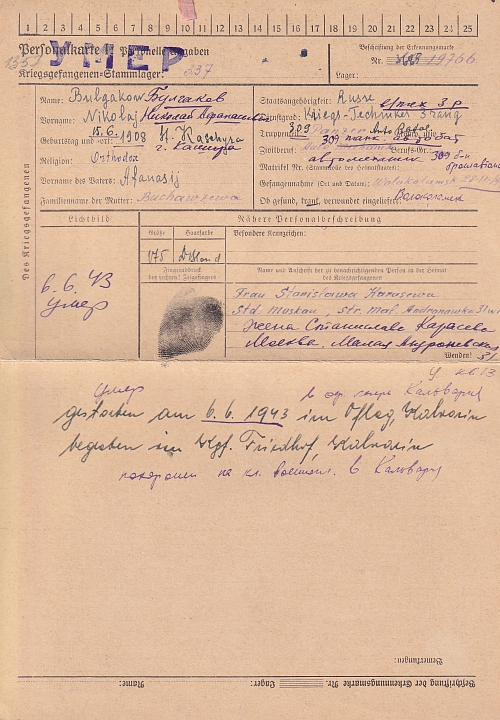 1 2 3 4 5 6 7 8 9 10 11 12 13 14 15 16 17 18 19 20 21 22 23 24 25
Personalkarte I: Personelle Angaben
УМЕР
Beschriftung der Erkennungsmarke
Nr. 19766
Kriegsgefangenen-Stammlager: 237
Lager:
Des Kriegsgefangenen
Name: Bulgakow Булгаков
Staatsangehörigkeit: Russe
Vorname: Nikolaj Николай Афанасьевич
Dienstgrad: Kriegs-Techniker 3 rang
Geburtstag und -ort: 15.6.1908 St. Kaschyra
г. Кашира
Truppenteil: 309
Religion: Orthodox
Zivilberuf: Berufs-Gr.:
автомеханик
Matrikel Nr. (Stammrolle des Heimatstaates):
Vorname des Vaters: Afanasij
Gefangennahme (Ort und Datum): Wolokolamsk
Familienname der Mutter:
Ob gesund, krank, verwundet eingeliefert:
Волоколамск
Lichtbild
Nähere Personalbeschreibung
Größe Haarfarbe Besondere Kennzeichen:
175 D.Blond
Fingerabdruck
des rechten Zeigefingers
Name und Anschrift der zu benachrichtigenden Person in der Heimat
des Kriegsgefangenen
6.6.43
умер
Frau Stanislawa Karasewa
Std. Moskau, str. mal. Andronowka 31
Жена Станислава Карасева
Москва, Малая Андроневская
31
Wenden!
умер
gestorben am 6.6.1943 im Oflag, Kalvarin
begraben im Kgf. Friedhof, Kalvarin
похоронен на кл. военнопл. в Кальварии
Bemerkungen:
Beschriftung der Erkennungsmarke Nr. Lager: Name: